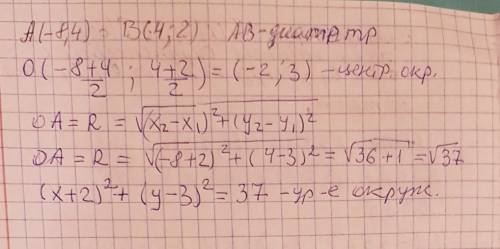 A(-8,4) B(4;2) AB-диаметр
O(-8+4/2 ; 4+2/2) = (-2;3) - центр окр.
OA = R = √(x₂-x₁)²+(y₂-y₁)²
OA = R = √(-8+2)²+(4-3)² = √36+1 = √37
(x+2)²+(y-3)² = 37 - ур-е окруж.